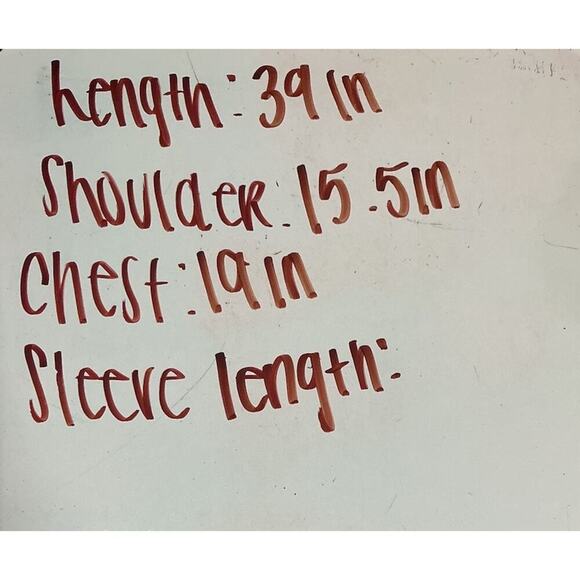 Length: 39 in
Shoulder. 15.5in
Chest: 19 in
Sleeve length: